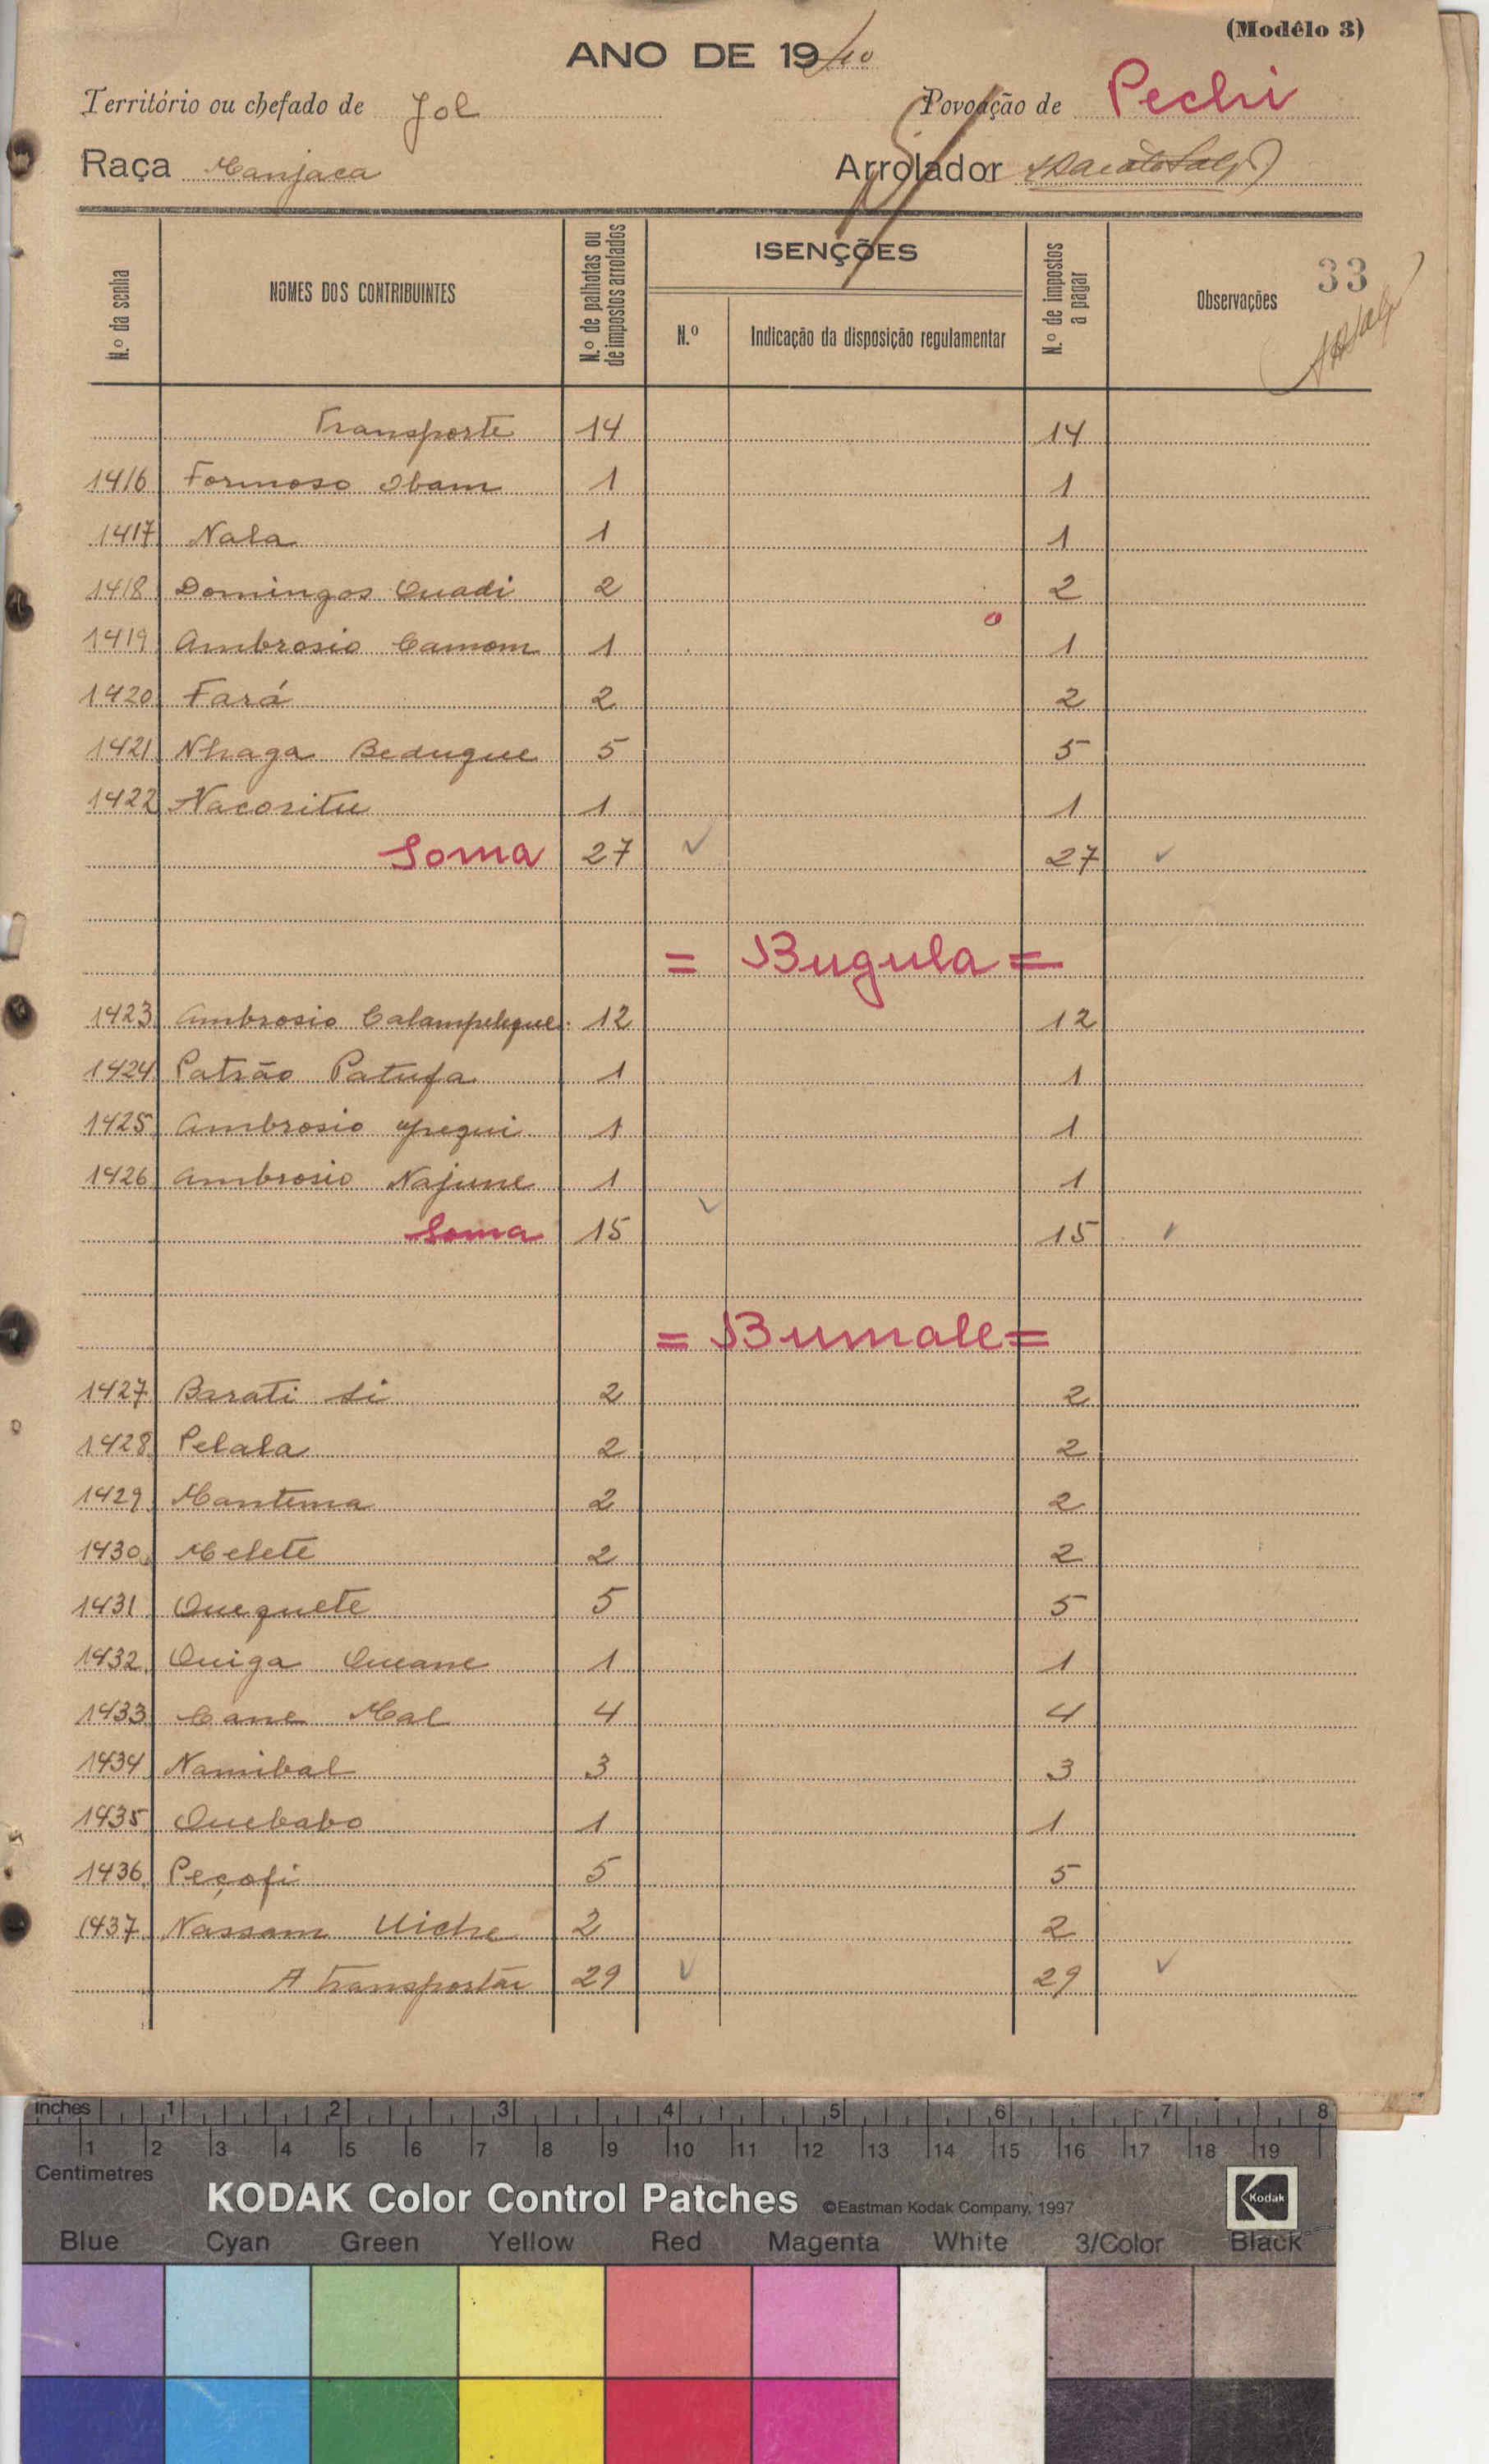 (Modêlo 3)
ANO DE 1940
Território ou chefado de Jol Povoação de Pechi
Raça Manjaca Arrolador
N.º da senha NOMES DOS CONTRIBUINTES N.º de palhotas ou de impostos arrolados ISENÇÕES N.º de impostos a pagar Observações 33
N.º Indicação da disposição regulamentar
Transporte 14 14
1416 Formoso Ibam 1 1
1417 Nala 1 1
1418 Domingos Quadi 2 2
1419 Ambrosio Camom 1 1
1420 Fará 2 2
1421 Nhaga Bedugue 5 5
1422 Nacositu 1 1
Soma 27 27
= Bugula =
1423 Ambrosio Calampelegue 12 12
1424 Patrão Patufa 1 1
1425 Ambrosio 1 1
1426 Ambrosio Najune 1 1
Soma 15 15
= Bumale =
1427 Barati Si 2 2
1428 Pelala 2 2
1429 Mantema 2 2
1430 Melete 2 2
1431 Quequete 5 5
1432 Quiga Queane 1 1
1433 Cane Mal 4 4
1434 Namibal 3 3
1435 Quebabo 1 1
1436 Peçofi 5 5
1437 Nassam Uiche 2 2
A transportar 29 29
inches 1 2 3 4 5 6 7 8
1 2 3 4 5 6 7 8 9 10 11 12 13 14 15 16 17 18 19
Centimetres
KODAK Color Control Patches ©Eastman Kodak Company, 1997 Kodak
Blue Cyan Green Yellow Red Magenta White 3/Color Black